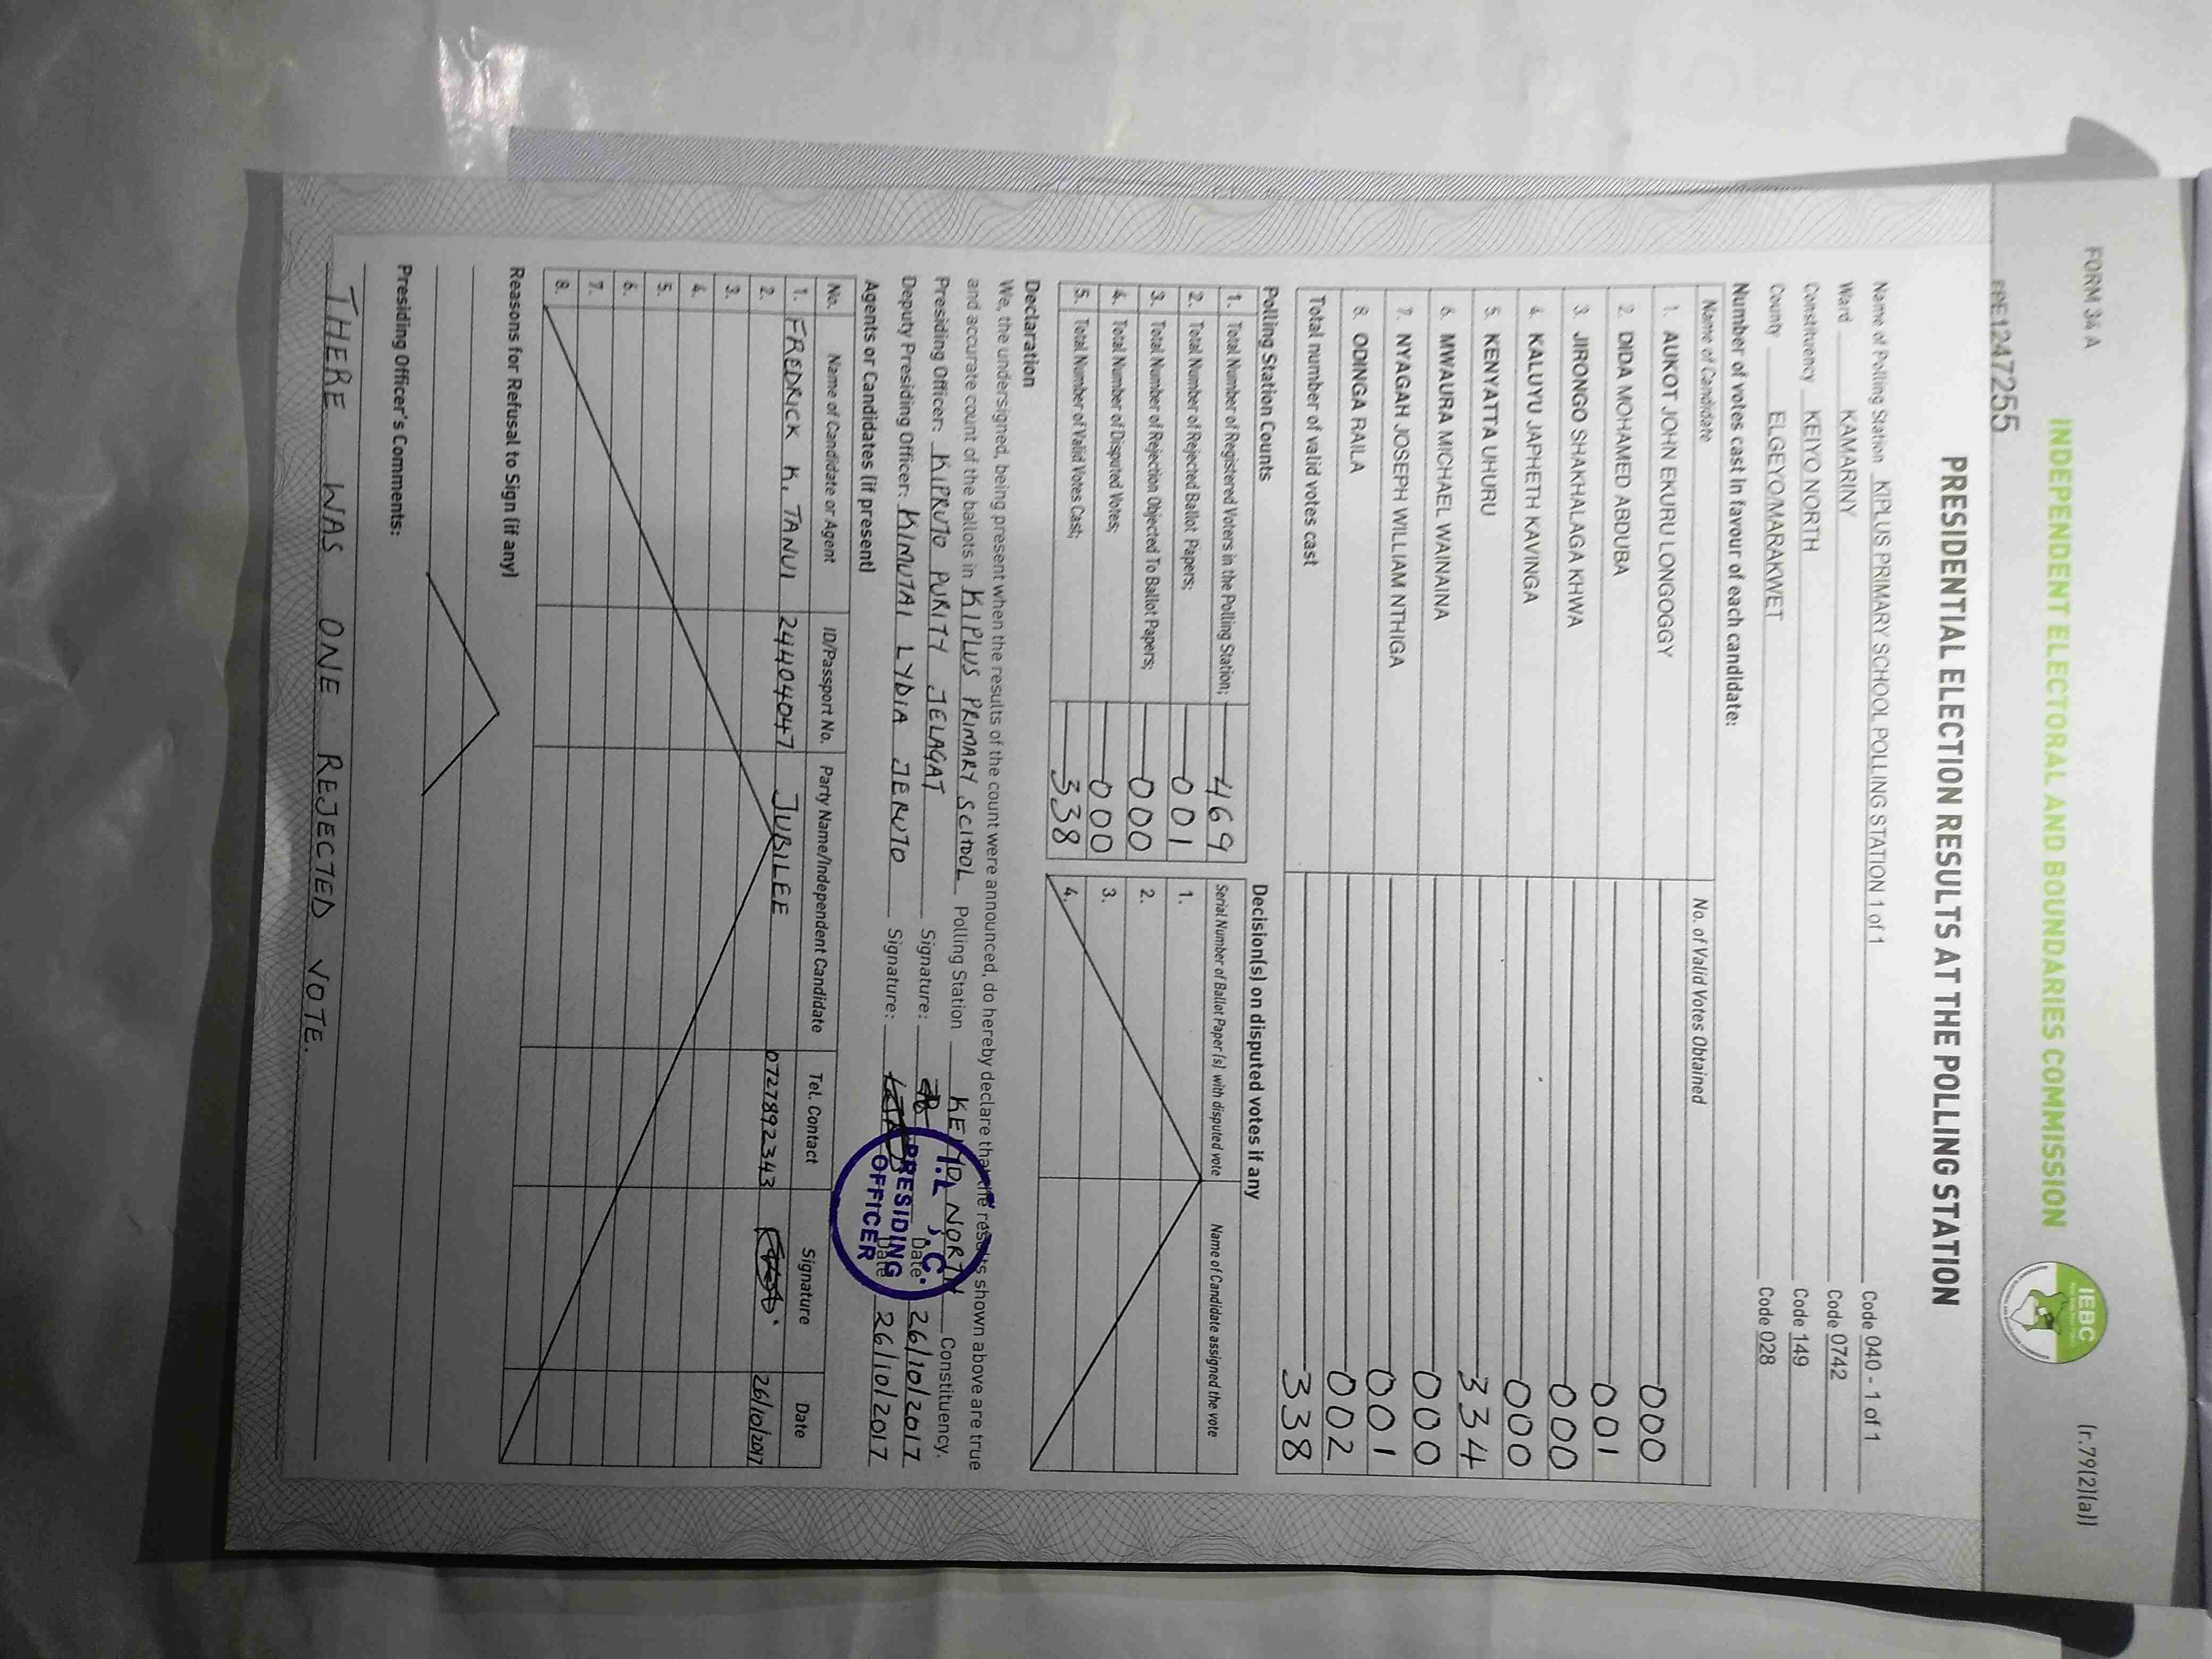 FORM 34 A
(r.79(2)(a))
INDEPENDENT ELECTORAL AND BOUNDARIES COMMISSION
IEBC
PRESIDENTIAL ELECTION RESULTS AT THE POLLING STATION
Name of Polling Station KIPLUS PRIMARY SCHOOL POLLING STATION 1 of 1 Code 040 - 1 of 1
Ward KAMARINY Code 0742
Constituency KEIYO NORTH Code 149
County ELGEYO/MARAKWET Code 028
Number of votes cast in favour of each candidate:
Name of Candidate No. of Valid Votes Obtained
1. AUKOT JOHN EKURU LONGOGGY 000
2. DIDA MOHAMED ABDUBA 001
3. JIRONGO SHAKHALAGA KHWA 000
4. KALUYU JAPHETH KAVINGA 000
5. KENYATTA UHURU 334
6. MWAURA MICHAEL WAINAINA 000
7. NYAGAH JOSEPH WILLIAM NTHIGA 001
8. ODINGA RAILA 002
Total number of valid votes cast 338
Polling Station Counts
1. Total Number of Registered Voters in the Polling Station; 469
2. Total Number of Rejected Ballot Papers; 001
3. Total Number of Rejection Objected To Ballot Papers; 000
4. Total Number of Disputed Votes; 000
5. Total Number of Valid Votes Cast; 338
Decision(s) on disputed votes if any
Serial Number of Ballot Paper (s) with disputed vote Name of Candidate assigned the vote
1.
2.
3.
4.
Declaration
We, the undersigned, being present when the results of the count were announced, do hereby declare that the results shown above are true
and accurate count of the ballots in KIPLUS PRIMARY SCHOOL Polling Station KEIYO NORTH Constituency.
Presiding Officer: KIPRUTO PURITY JELAGAT Signature: Date 26/10/2017
Deputy Presiding Officer: KIMUTAI LYDIA JERUTO Signature: Date 26/10/2017
PRESIDING
OFFICER
Agents or Candidates (if present)
No. Name of Candidate or Agent ID/Passport No. Party Name/Independent Candidate Tel. Contact Signature Date
1. FREDRICK K. TANUI 24404047 JUBILEE 0727892343 26/10/2017
2.
3.
4.
5.
6.
7.
8.
Reasons for Refusal to Sign (if any)
Presiding Officer's Comments:
THERE WAS ONE REJECTED VOTE.